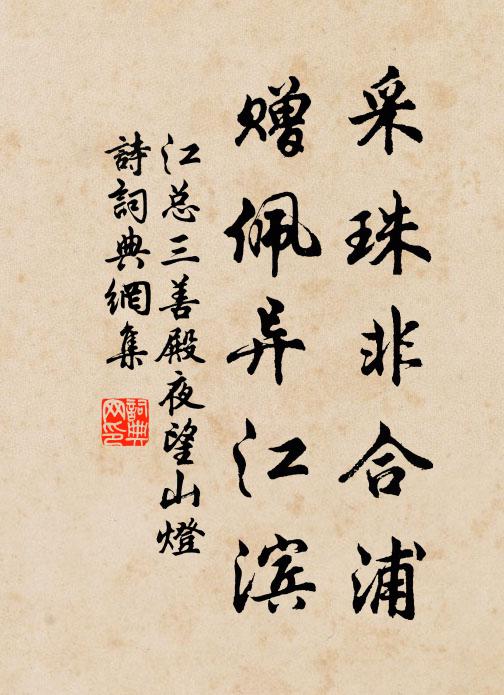 采珠非合浦
赠佩异江滨
江总三善殿夜望山燈
詩詞典網集
詞典
网印